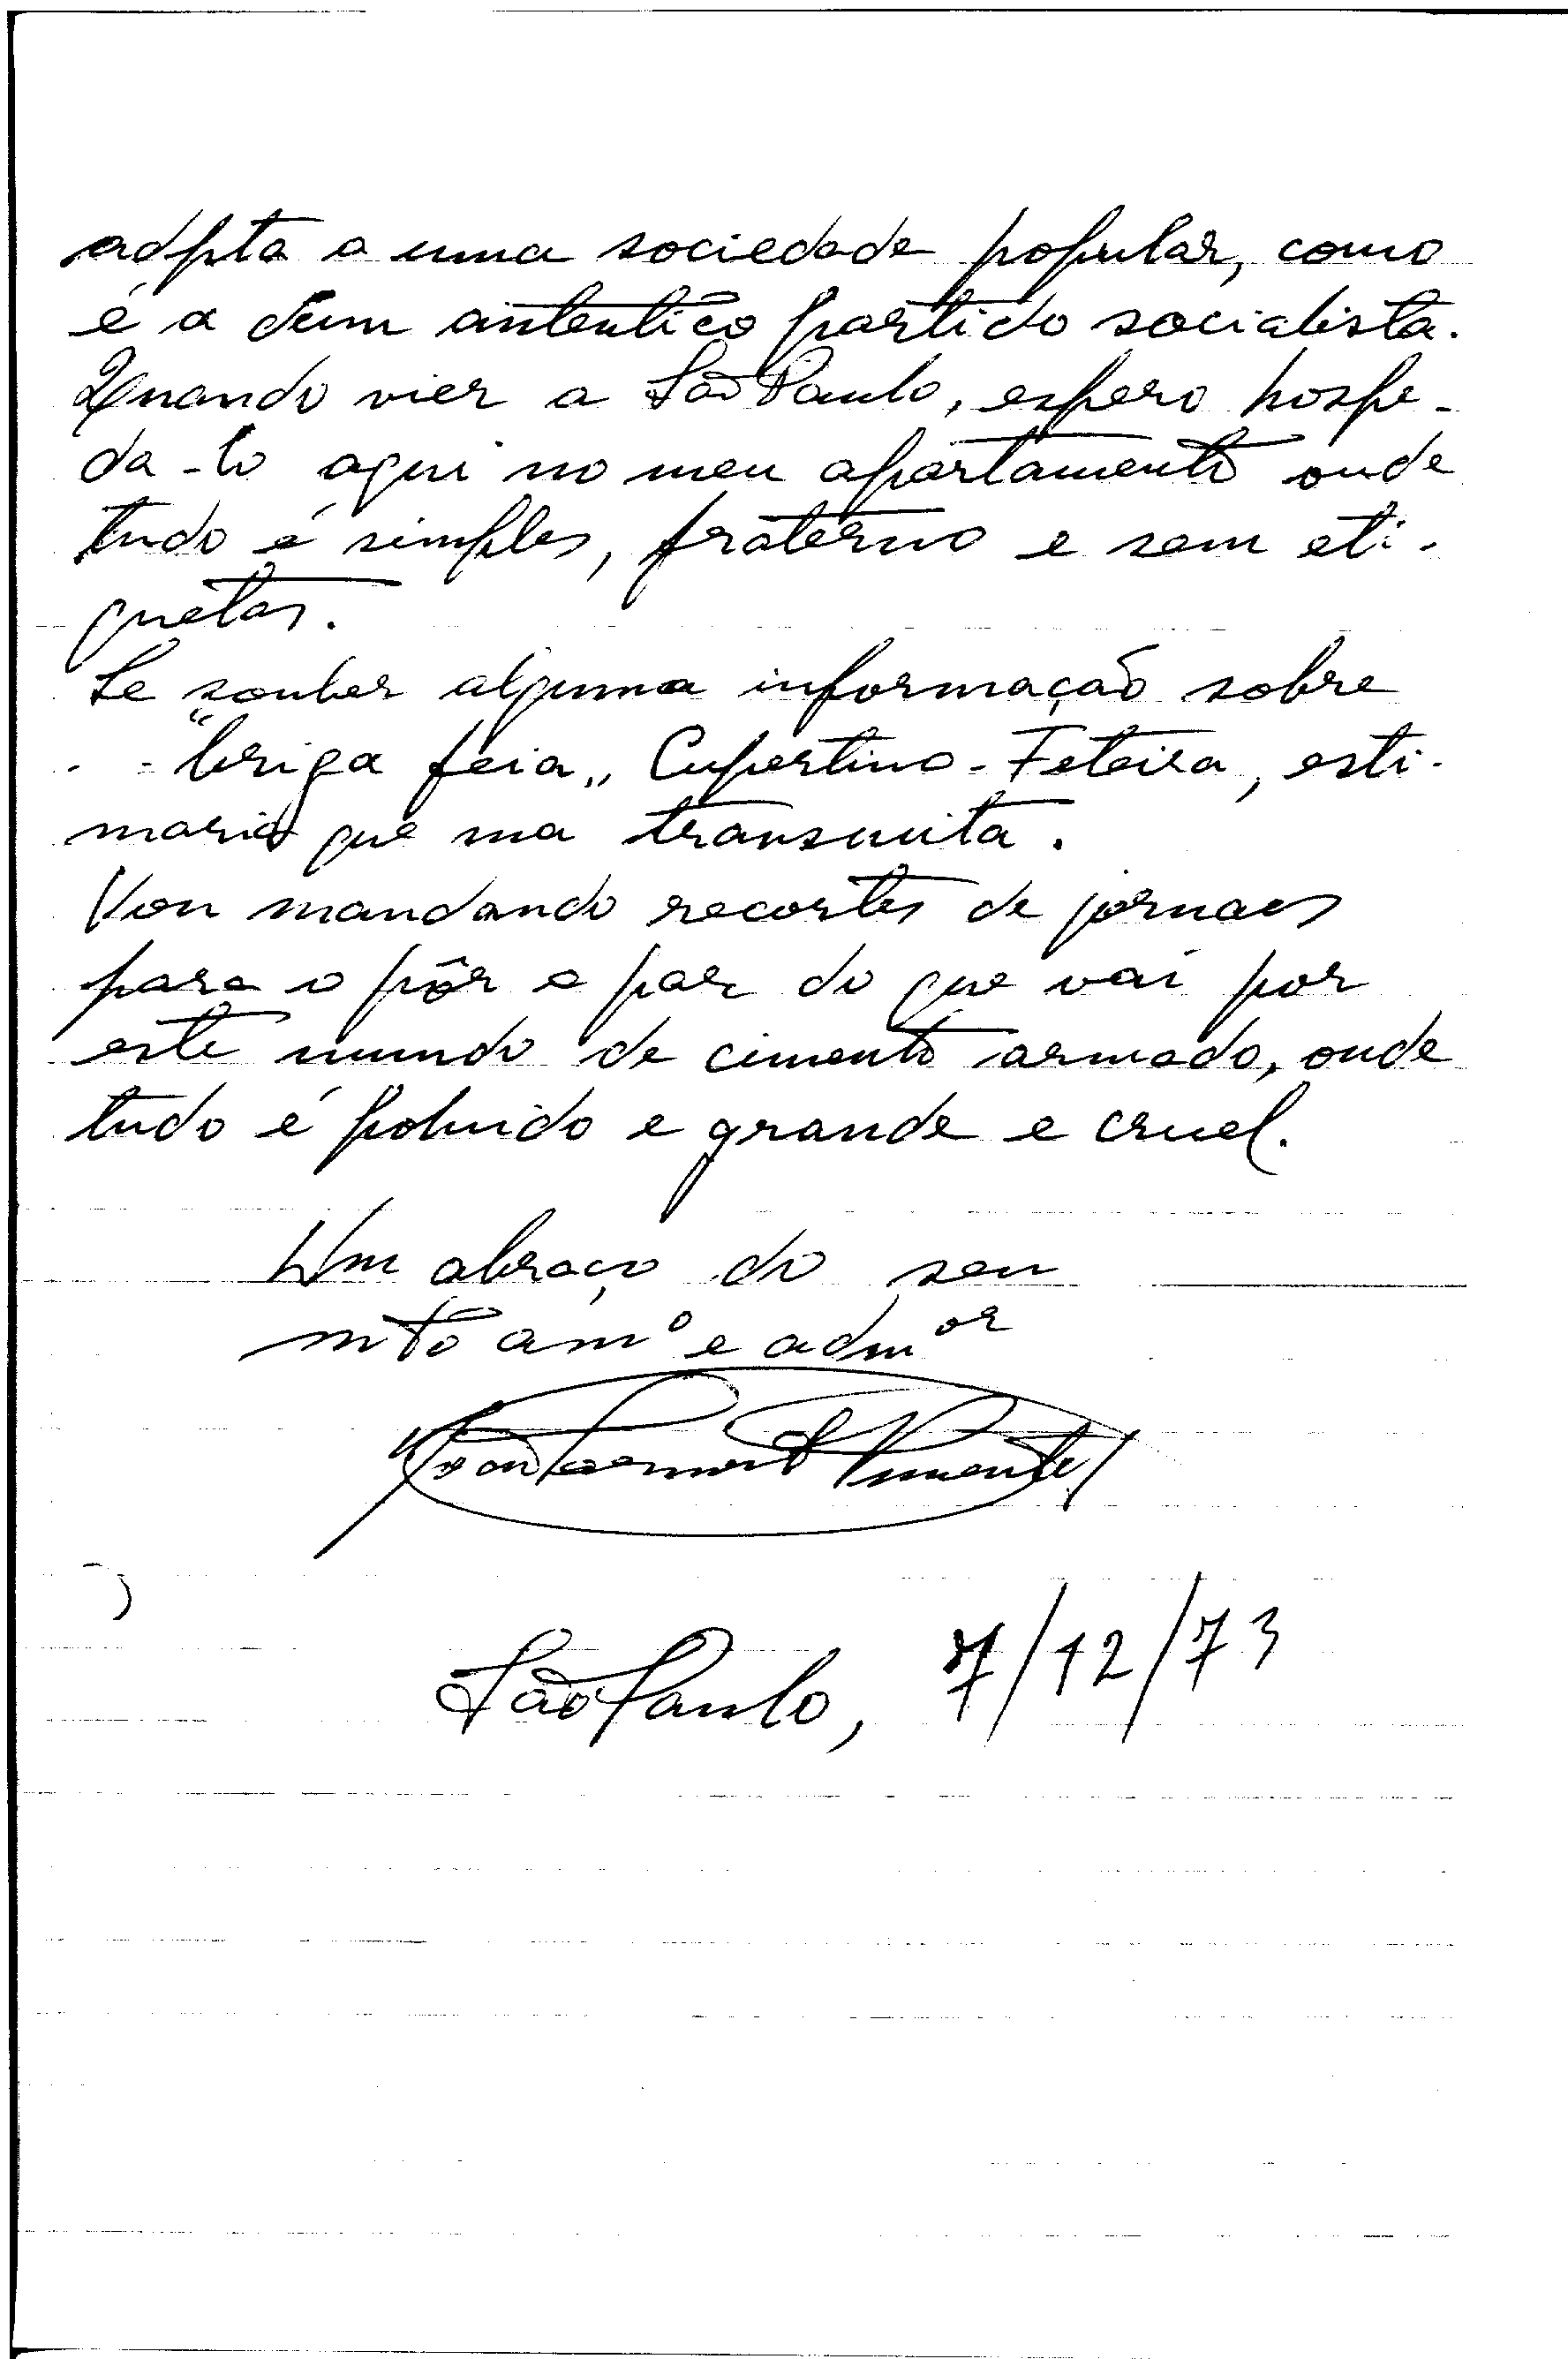 adpta a uma sociedade popular, como
é a dum autentico partido socialista.
Quando vier a São Paulo, espero hospe-
da-lo aqui no meu apartamento onde
tudo é simples, fraterno e sem eti-
quetas.
Se souber alguma informação sobre
"briga feia" Cupertino-Feteira, esti-
maria que ma transmita.
Vou mandando recortes de jornaes
para o pôr a par do que vai por
este mundo de cimento armado, onde
tudo é poluido e grande e cruel.
Um abraço do seu
mto amº e admor
Sarmento Pimentel
São Paulo, 7/12/73